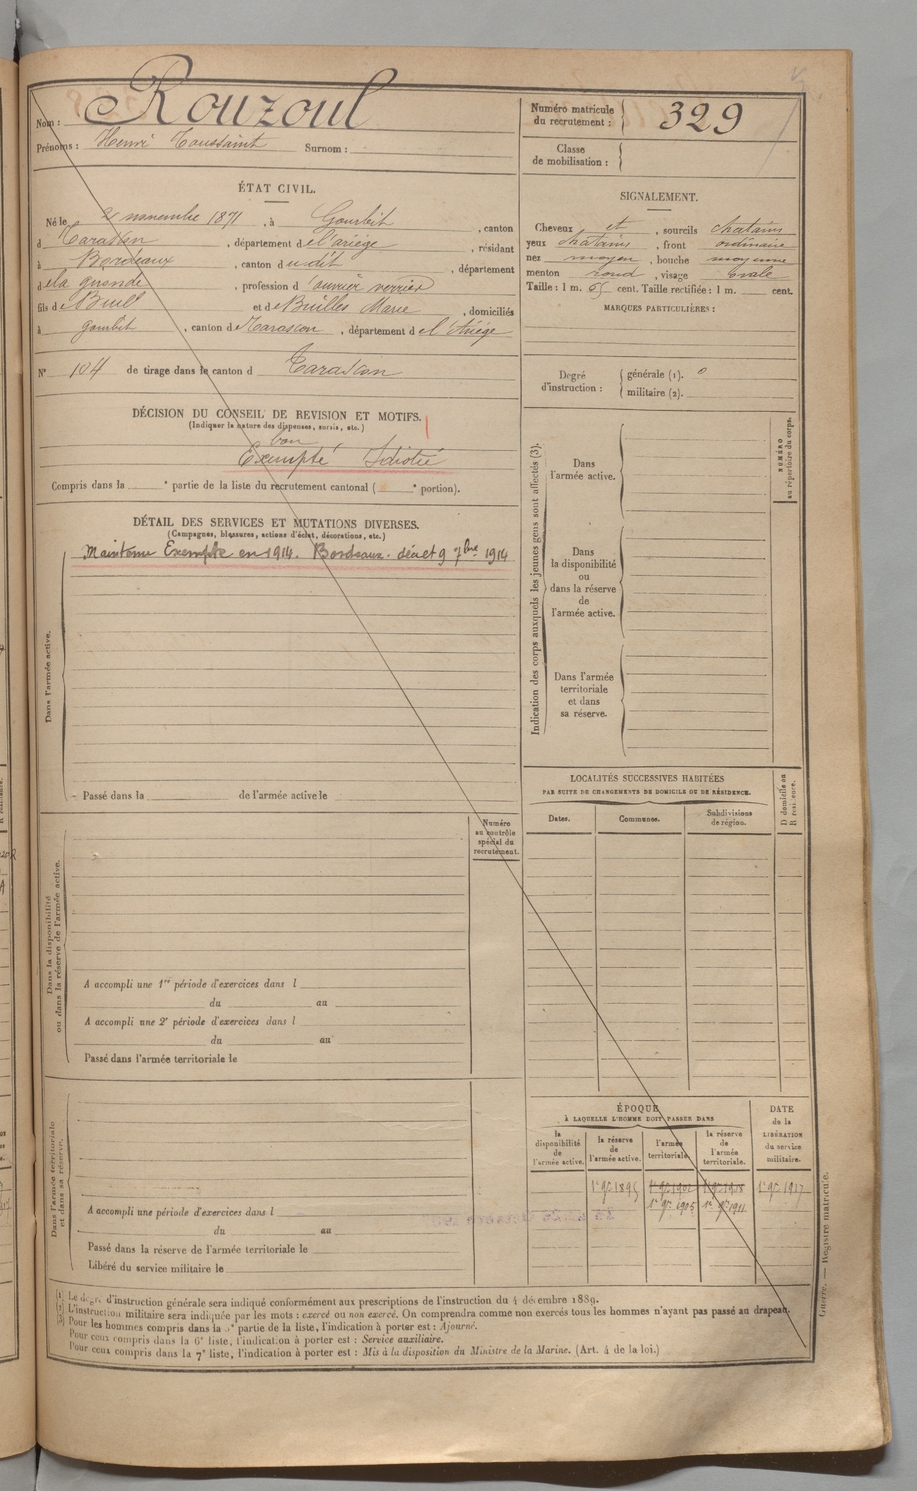 Nom : Rouzoul
Prénoms : Henri Toussaint Surnom :
Numéro matricule du recrutement : 329
Classe de mobilisation :
ÉTAT CIVIL.
Né le 2 novembre 1871, à Gourbit, canton
d Tarascon, département de l'ariége, résidant
à Bordeaux, canton du dit, département
de la gironde, profession d'ouvrier verrier
fils de et de Marie, domiciliés
à gourbit, canton de Tarascon, département de l'Ariége
N° 104 de tirage dans le canton d Tarascon
SIGNALEMENT.
Cheveux et, sourcils chatains
yeux chatains, front ordinaire
nez moyen, bouche moyenne
menton rond, visage ovale
Taille : 1 m. 65 cent. Taille rectifiée : 1 m. cent.
MARQUES PARTICULIÈRES :
Degré d'instruction : générale (1). 0
militaire (2).
DÉCISION DU CONSEIL DE REVISION ET MOTIFS.
(Indiquer la nature des dispenses, sursis, etc.)
bon
Exempté Idiotie
Compris dans la e partie de la liste du recrutement cantonal ( e portion).
DÉTAIL DES SERVICES ET MUTATIONS DIVERSES.
(Campagnes, blessures, actions d'éclat, décorations, etc.)
Maintenu Exempté en 1914. Bordeaux. décret 9 7bre 1914
Dans l'armée active.
Passé dans la de l'armée active le
Indication des corps auxquels les jeunes gens sont affectés (3).
Dans l'armée active.
Dans la disponibilité ou dans la réserve de l'armée active.
Dans l'armée territoriale et dans sa réserve.
NUMÉRO au répertoire du corps.
LOCALITÉS SUCCESSIVES HABITÉES
PAR SUITE DE CHANGEMENTS DE DOMICILE OU DE RÉSIDENCE.
Dates. Communes. Subdivisions de région. D domicile ou R résidence.
Numéro au contrôle spécial du recrutement.
Dans la disponibilité ou dans la réserve de l'armée active.
A accompli une 1re période d'exercices dans l
du au
A accompli une 2e période d'exercices dans l
du au
Passé dans l'armée territoriale le
Dans l'armée territoriale et dans sa réserve.
A accompli une période d'exercices dans l
du au
Passé dans la réserve de l'armée territoriale le
Libéré du service militaire le
ÉPOQUE
À LAQUELLE L'HOMME DOIT PASSER DANS
la disponibilité de l'armée active.
la réserve de l'armée active.
l'armée territoriale.
la réserve de l'armée territoriale.
DATE de la LIBÉRATION du service militaire.
1er 9bre 1895 1er 9bre 1917
1er 9bre 1905 1er 9bre 1911
(1) Le degré d'instruction générale sera indiqué conformément aux prescriptions de l'instruction du 4 décembre 1889.
(2) L'instruction militaire sera indiquée par les mots : exercé ou non exercé. On comprendra comme non exercés tous les hommes n'ayant pas passé au drapeau.
(3) Pour les hommes compris dans la e partie de la liste, l'indication à porter est : Ajourné.
Pour ceux compris dans la 6e liste, l'indication à porter est : Service auxiliaire.
Pour ceux compris dans la 7e liste, l'indication à porter est : Mis à la disposition du Ministre de la Marine. (Art. 4 de la loi.)
Guerre. — Registre matricule.